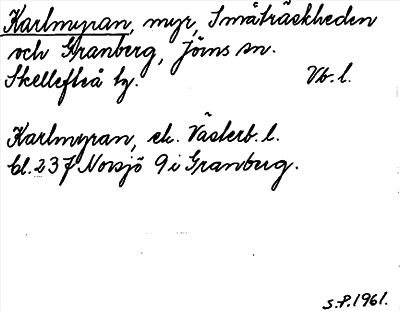 Karlmyran, myr, Småträskheden
och Granberg, Jörns sn.
Skellefteå tg. Vb. l.
Karlmyran, ek. Västerb. l.
bl. 237 Norsjö 9 i Granberg.
S.P. 1961.